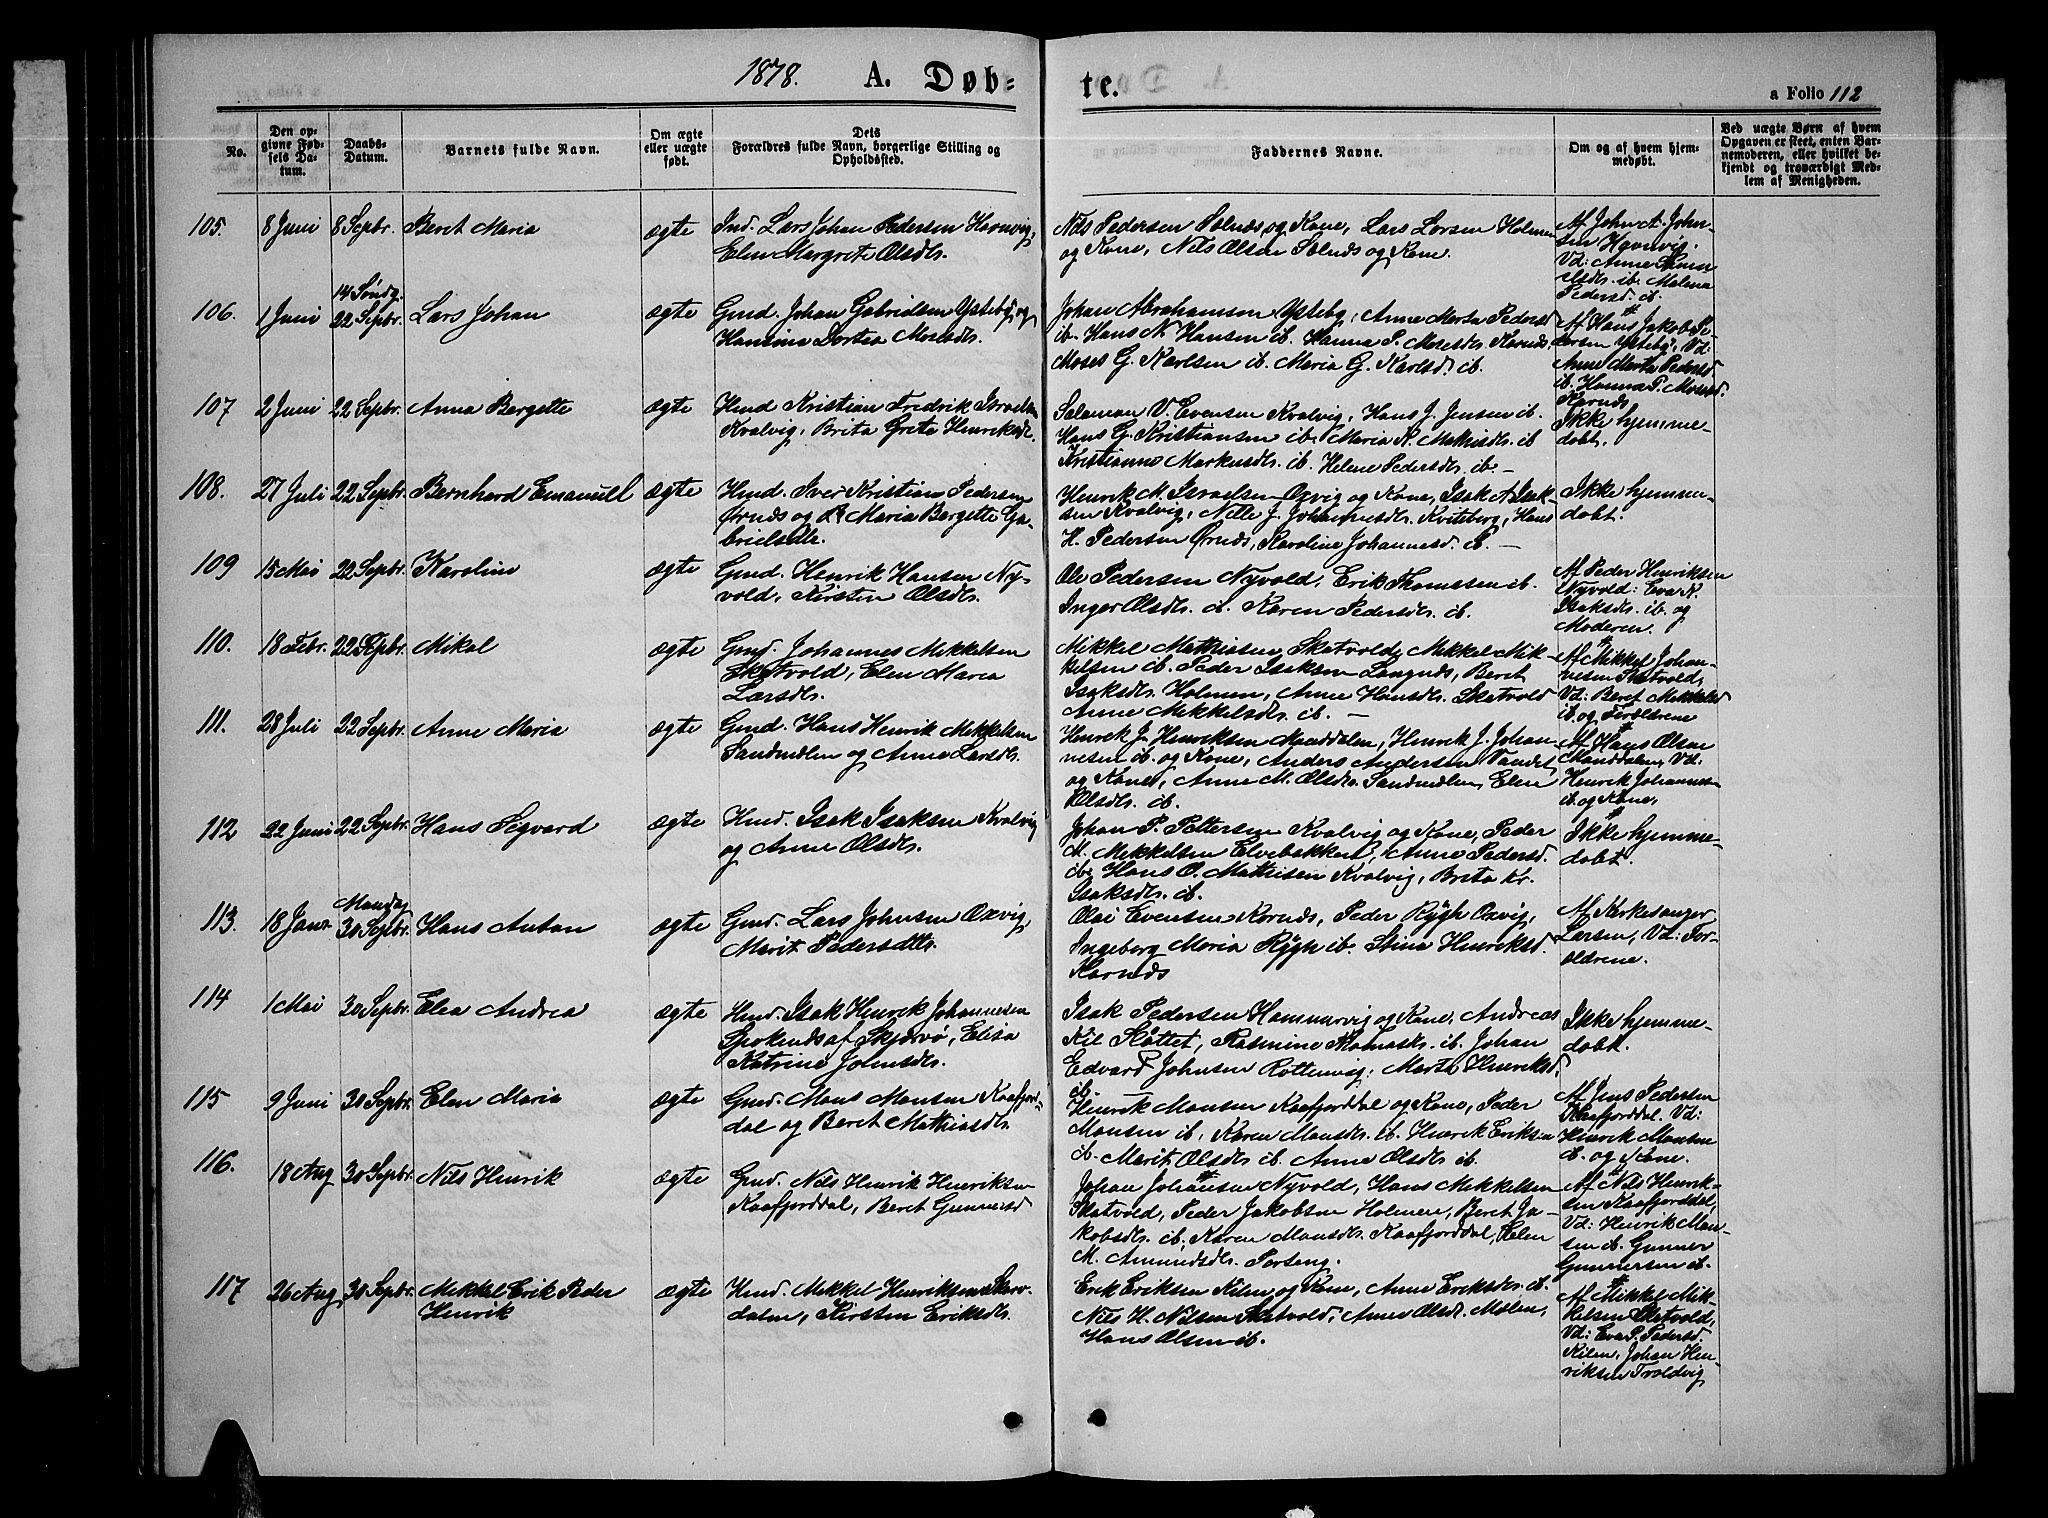 1878. A. Døb=
te.
a Folio 112
No.
Den op=
givne Fød=
sels Da=
tum.
Daabs=
Datum.
Barnets fulde Navn.
Om ægte
eller uægte
født.
Dets
Forældres fulde Navn, borgerlige Stilling og
Opholdssted.
Faddernes Navne.
Om og af hvem hjem=
medøbt.
Ved uægte Børn af hvem
Opgaven er skeet, enten Bar=
nemoderen, eller hvilket be=
kjendt og troværdigt Med=
lem af Menigheden.
105. 8 Juni 8 Septbr. Beret Maria ægte
Ind. Lars Johan Pedersen Havnvig,
Elen Margrete Olsdtr.
Nils Pedersen og Kone, Lars Larsen Holmen
og Kone, Nils Olsen og Kone.
Af John A. John-
sen
Vd: Anne
ib. Malena
Pedersd. ib.
14 Søndg.
106. 1 Juni 22 Septbr. Lars Johan ægte
Gmd. Johan Gabrielsen Ysteby og
Hansine Dortea Mosesdtr.
Johan Abrahamsen Ysteby, Anne Marta Pedersd
ib. Hans N. Hansen ib. Hanna P. Mosesdtr. Karnæs.
Moses G. Karlsen ib. Maria G. Karlsd. ib.
Af Hans Jakob Pe-
dersen Ysteby, Vd:
Anne Marta Pedersd
ib. Hanna P. Mosesd.
Karnæs
107 2 Juni 22 Septbr. Anna Bergette ægte
Hmd Kristian Fredrik Israelsen
Kvalvig, Brita Grete Henriksdtr.
Salamon V. Evensen Kvalvig, Hans J. Jensen ib.
Hans G. Kristiansen ib. Maria K. Mathisdtr. ib
Kristianne Markusdtr. ib. Helene Pedersdtr. ib. —
Ikke hjemme-
døbt.
108. 27 Juli 22 Septbr Bernhard Emanuel ægte
Hmd. Iver Kristian Pedersen
Ørnæs og Maria Bergette Ga-
brielsdtr.
Henrik M. Israelsen Oxvig og Kone, Isak A. Isak-
sen Kvalvig, Nelle J. Johannesdtr. Kviteberg, Hans
H. Pedersen Ørnæs, Karoline Johannesd. ib. —
Ikke hjemme-
døbt.
109 15 Mai 22 Septbr. Karoline ægte
Gmd. Henrik Hansen Ny-
vold, Kirsten Olsdtr.
Ole Pedersen Nyvold, Erik Thomassen ib.
Inger Olsdtr. ib. Karen Pedersdtr. ib.
Af Peder Henriksen
Nyvold: Eva K.
Isaksdtr. ib. og
Moderen.
110. 18 Febr. 22 Septbr. Mikal ægte
Gmd. Johannes Mikkelsen
Skatvold, Elen Maria
Larsdtr.
Mikkel Mathisen Skatvold, Mikkel Mik-
kelsen ib. Peder Isaksen Langnæs, Beret
Isaksdtr. Holmen, Anne Hansdtr. Skatvold
Anne Mikkelsdtr. ib. —
Af Mikkel Johan-
nesen Skatvold,
Vd: Beret Mikkelsd
ib. og Forældrene
111. 28 Juli 22 Septbr. Anne Maria ægte
Gmd. Hans Henrik Mikkelsen
Sandmælen og Anne Larsdtr.
Henrik J. Henriksen Manddalen, Henrik J. Johan-
nesen ib. og Kone, Anders Andersen Vandet
og Kone, Anne M. Olsdtr. Sandmælen, Elen
Olsdtr. ib.
Af Hans Olsen
Manddalen, Vd:
Henrik Johannesen
ib. og Kone,
112 22 Juni 22 Septbr. Hans Segvard ægte
Hmd. Isak Isaksen Kvalvig
og Anne Olsdtr.
Johan P. Pettersen Kvalvig og Kone, Peder
M. Mikkelsen Elvebakken, Anne Pedersd.
ib. Hans O. Mathisen Kvalvig, Brita Kr.
Isaksdtr. ib.
Ikke hjemme-
døbt.
Mandag
113. 18 Janr. 30 Septbr. Hans Anton ægte
Gmd. Lars Johnsen Oxvig,
Marit Pedersdtr.
Olai Evensen Kornæs, Peder Rÿgh Oxvig,
Ingeborg Maria Rÿgh ib. Stine Henriksd.
Karnæs
Af Kirkesanger
Larsen, Vd: For-
ældrene.
114 1 Mai 30 Septbr. Elea Andrea ægte
Hmd. Isak Henrik Johannesen
Spokenæs af Skjervø, Elisa
Katrine Johnsdtr.
Isak Pedersen Hammarvig og Kone, Andreas
Kil Slottet, Rasmine Thomasdtr. ib. Johan
Edvard Johnsen Rottenvig, Marta Henriksd.
ib —
Ikke hjemme-
døbt.
115 9 Juni 30 Septbr. Elen Maria ægte
Gmd. Mons Monsen Kaafjord-
dal og Beret Mathiasdtr.
Henrik Monsen Kaafjorddal og Kone, Peder
Monsen ib, Karen Monsdtr. ib. Henrik Eriksen
ib. Marit Olsdtr. ib. Anne Olsdtr. ib.
Af Jens Pedersen
Kaafjorddal. Vd:
Henrik Monsen
ib. og Kone.
116. 18 Aug 30 Septbr. Nils Henrik ægte
Gmd. Nils Henrik Henriksen
Kaafjorddal, Beret Gunnersd
Johan Johansen Nyvold, Hans Mikkelsen
Skatvold, Peder Jakobsen Holmen, Beret Ja-
kobsdtr. ib. Karen Monsdtr. Kaafjorddal, Elen
M. Amundsdtr. Forseng.
Af Nils Henrik-
sen Kaafjorddal,
Vd: Henrik Mon-
sen ib. Gunner
Gunnersen ib.
117 26 Aug. 30 Septbr. Mikkel Erik Peder
Henrik ægte
Hmd. Mikkel Henriksen
dalen, Kirsten Eriksdtr.
Erik Eriksen Kilen og Kone, Anne Eriksdtr. ib.
Nils H. Nilsen Skatvold, Anne Olsdtr. Mælen,
Hans Olsen ib.
Af Mikkel Mik-
kelsen Skatvold,
Vd: Eva P. Pedersd.
Kilen, Johan Hen-
riksen Troldvig